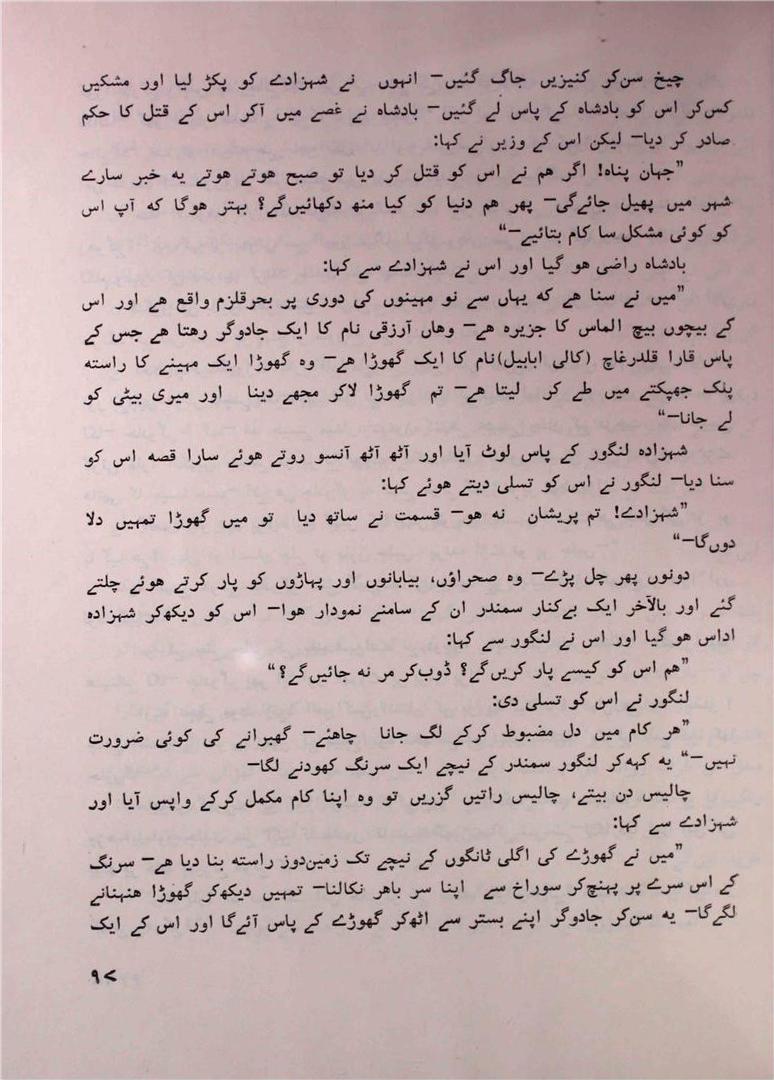 چیخ سن‌کر کنیزیں جاگ گئیں— انہوں نے شہزادے کو پکڑ لیا اور مشکیں
کس‌کر اس کو بادشاہ کے پاس لے گئیں— بادشاہ نے غصے میں آکر اس کے قتل کا حکم
صادر کر دیا— لیکن اس کے وزیر نے کہا:
”جہان پناہ! اگر ہم نے اس کو قتل کر دیا تو صبح ہوتے ہوتے یہ خبر سارے
شہر میں پھیل جائےگی— پھر ہم دنیا کو کیا منھ دکھائیں‌گے؟ بہتر ہوگا کہ آپ اس
کو کوئی مشکل سا کام بتائیے—“
بادشاہ راضی ہو گیا اور اس نے شہزادے سے کہا:
”میں نے سنا ہے کہ یہاں سے نو مہینوں کی دوری پر بحرقلزم واقع ہے اور اس
کے بیچوں بیچ الماس کا جزیرہ ہے— وہاں آرزقی نام کا ایک جادوگر رہتا ہے جس کے
پاس قارا قلدرغاچ (کالی ابابیل)نام کا ایک گھوڑا ہے— وہ گھوڑا ایک مہینے کا راستہ
پلک جھپکتے میں طے کر لیتا ہے— تم گھوڑا لاکر مجھے دینا اور میری بیٹی کو
لے جانا—“
شہزادہ لنگور کے پاس لوٹ آیا اور آٹھ آٹھ آنسو روتے ہوئے سارا قصہ اس کو
سنا دیا— لنگور نے اس کو تسلی دیتے ہوئے کہا:
”شہزادے! تم پریشان نہ ہو— قسمت نے ساتھ دیا تو میں گھوڑا تمہیں دلا
دوں‌گا—“
دونوں پھر چل پڑے— وہ صحراؤں، بیابانوں اور پہاڑوں کو پار کرتے ہوئے چلتے
گئے اور بالآخر ایک بےکنار سمندر ان کے سامنے نمودار ہوا— اس کو دیکھ‌کر شہزادہ
اداس ہو گیا اور اس نے لنگور سے کہا:
”ہم اس کو کیسے پار کریں‌گے؟ ڈوب‌کر مر نہ جائیں‌گے؟“
لنگور نے اس کو تسلی دی:
”ہر کام میں دل مضبوط کرکے لگ جانا چاہئے— گھبرانے کی کوئی ضرورت
نہیں—“ یہ کہہ‌کر لنگور سمندر کے نیچے ایک سرنگ کھودنے لگا—
چالیس دن بیتے، چالیس راتیں گزریں تو وہ اپنا کام مکمل کرکے واپس آیا اور
شہزادے سے کہا:
”میں نے گھوڑے کی اگلی ٹانگوں کے نیچے تک زمین‌دوز راستہ بنا دیا ہے— سرنگ
کے اس سرے پر پہنچ‌کر سوراخ سے اپنا سر باہر نکالنا— تمہیں دیکھ‌کر گھوڑا ہنہنانے
لگےگا— یہ سن‌کر جادوگر اپنے بستر سے اٹھ‌کر گھوڑے کے پاس آئےگا اور اس کے ایک
۹۷